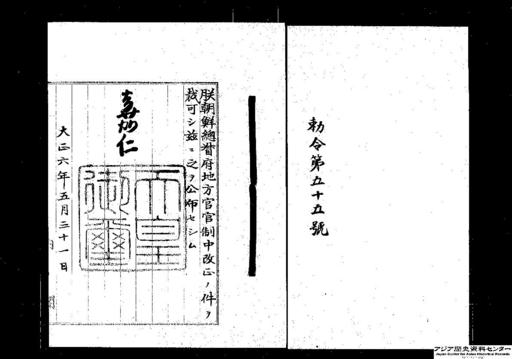 勅令第五十五號
朕朝鮮總督府地方官官制中改正ノ件ヲ
裁可シ茲ニ之ヲ公布セシム
嘉仁
天皇御璽
大正六年五月三十一日
アジア歴史資料センター
Japan Center for Asian Historical Records